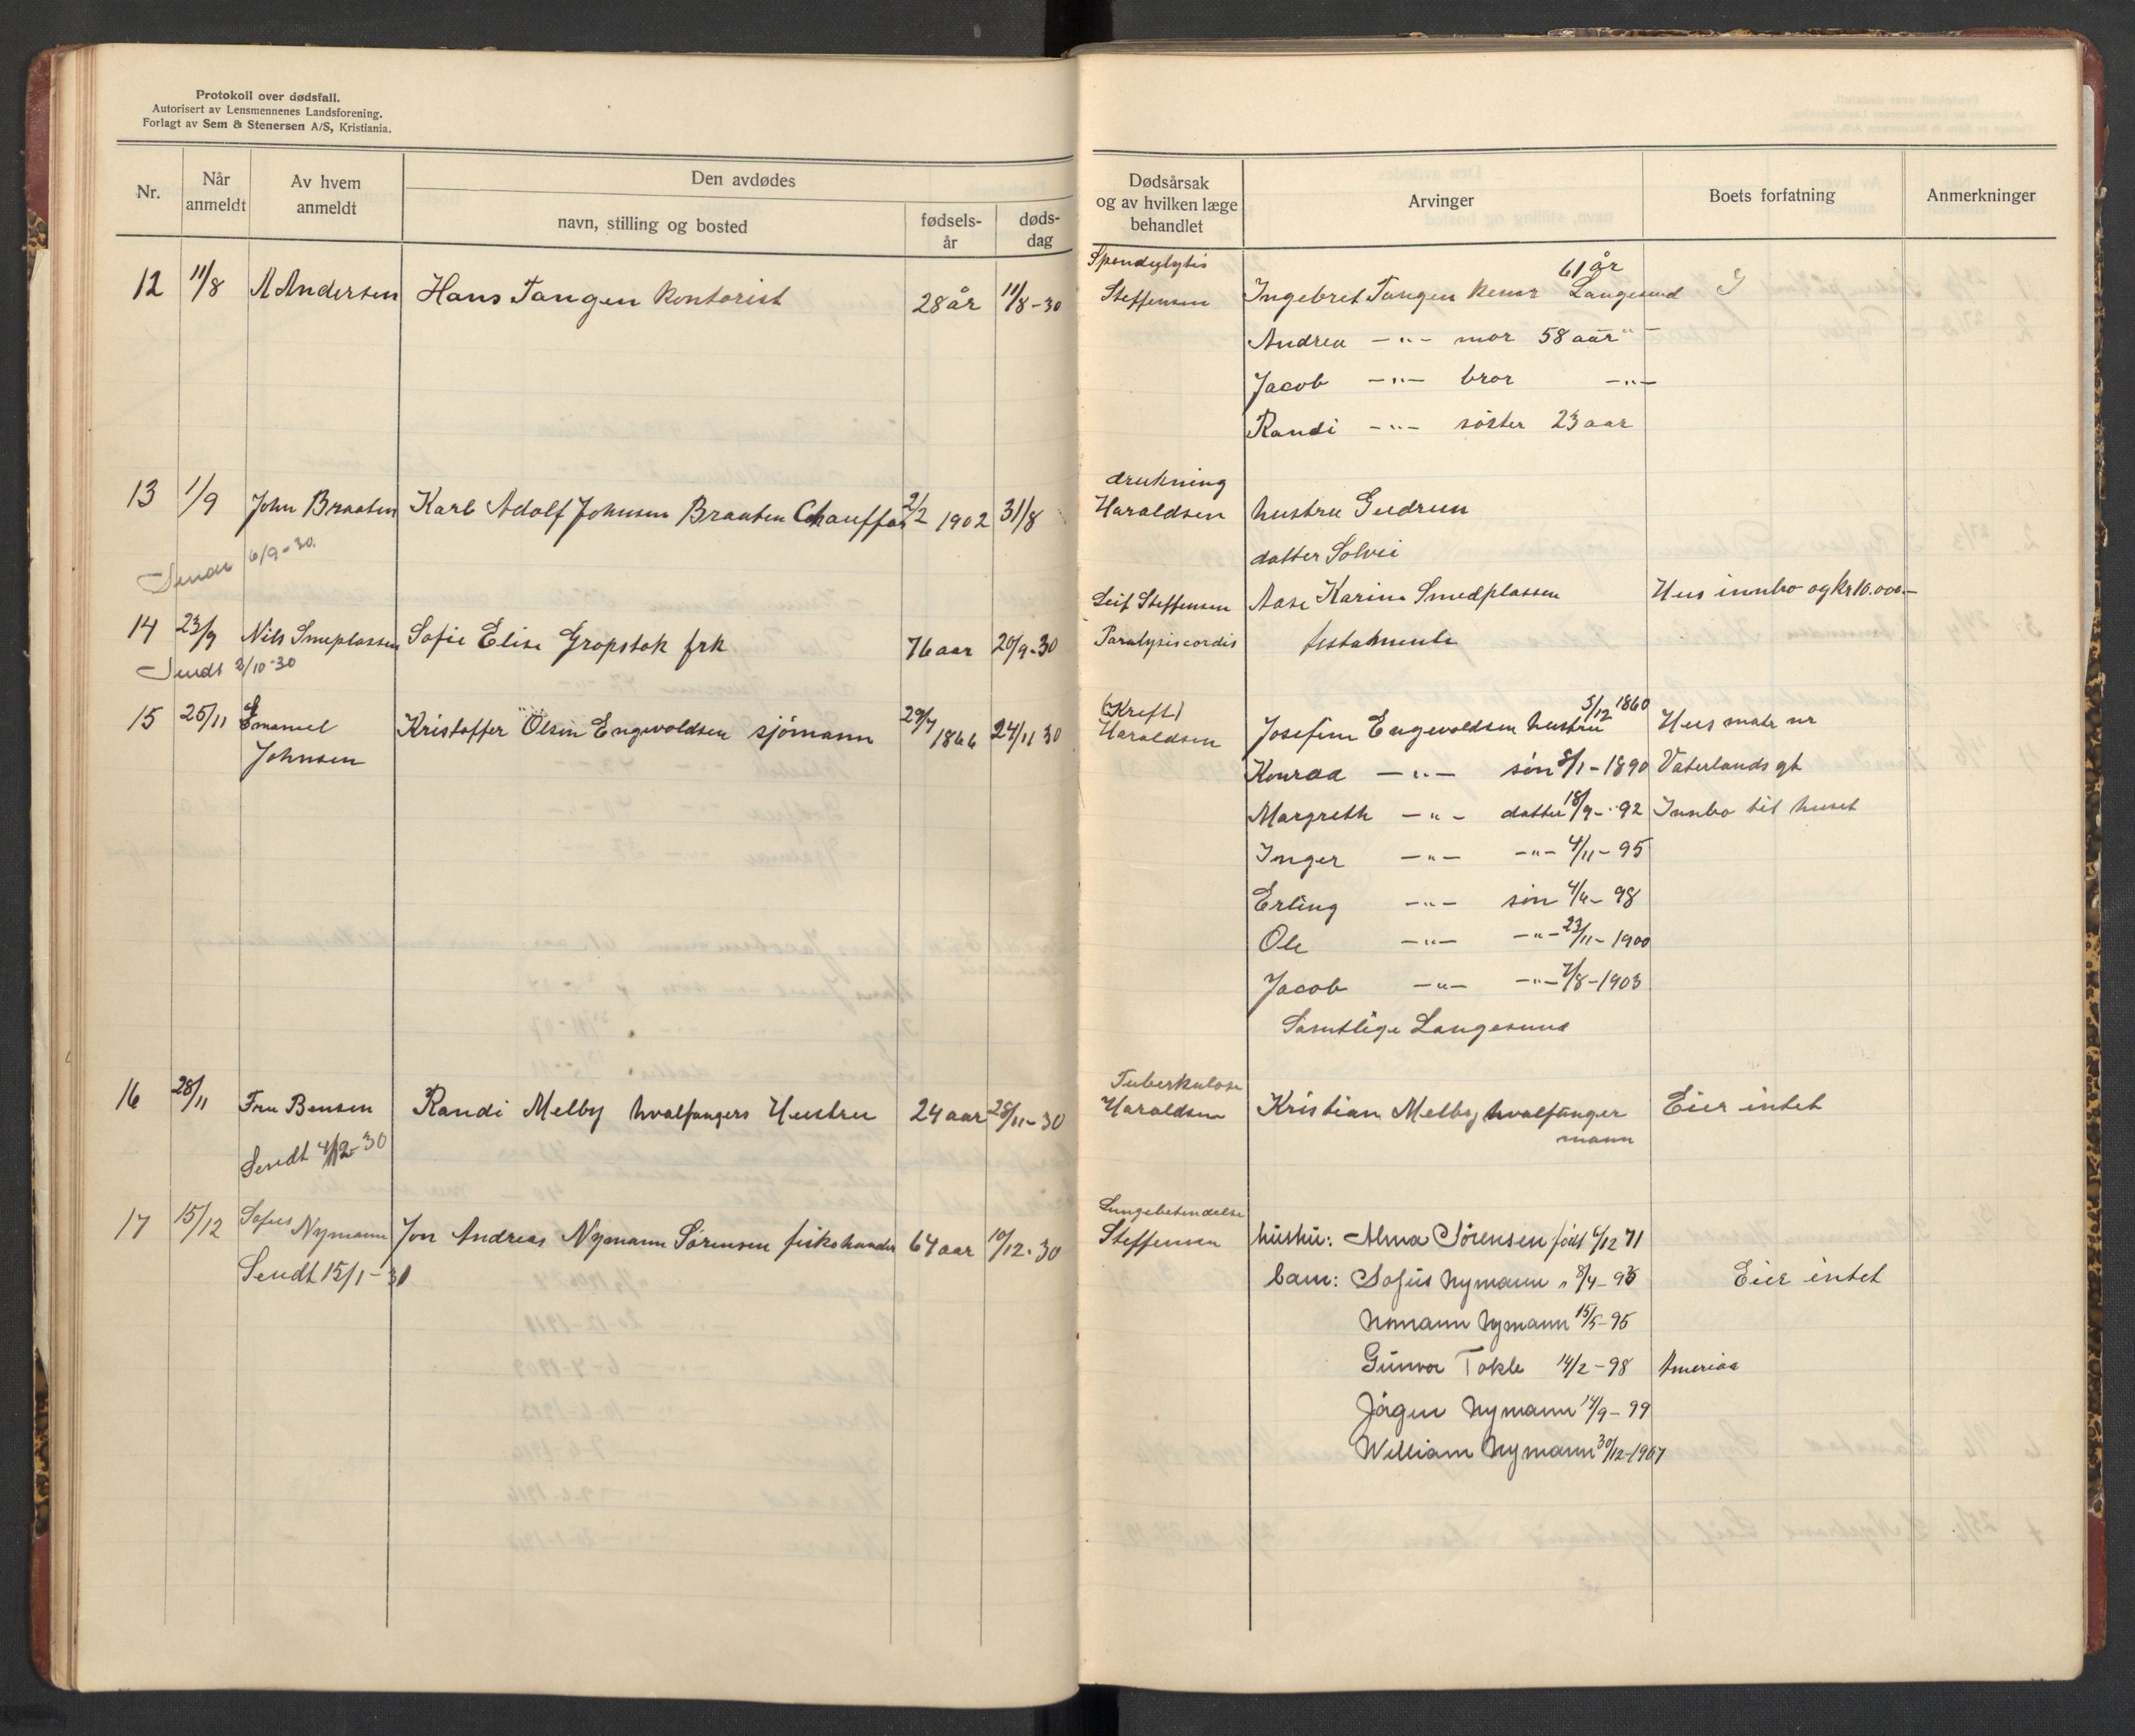 Protokoll over dødsfall.
Autorisert av Lensmennenes Landsforening.
Forlagt av Sem & Stenersen A/S, Kristiania.
Nr.
Når anmeldt
Av hvem anmeldt
Den avdødes
navn, stilling og bosted
fødsels-år
døds-dag
Dødsårsak og av hvilken læge behandlet
Arvinger
Boets forfatning
Anmerkninger
12 11/8 A Andersen Hans Tangen Kontorist 28 år 11/8-30
Steffensen Ingebret Tangen 61 år Langesund
Andrea -"- mor 58 aar "-
Jacob -"- bror -"-
Randi -"- søster 23 aar
drukning
13 1/9 John Braaten Karl Adolf Johnsen Braaten Chauffør 2/2 1902 31/8 Haraldsen hustru Gudrun
datter Solvei
Sendt 6/9-30.
Leif Steffensen Aase Karine Smedplassen Hus innbo og kr 10.000.-
14 23/9 Nils Smeplassen Sofie Elise Gropstok frk 76 aar 20/9-30 Paralysis cordis testamente
Sendt 2/10-30
(Kreft)
15 25/11 Emanuel Johnsen Kristoffer Olsen Engwoldsen sjömann 29/7 1866 24/11 30 Haraldsen Josefine Engevoldsen hustru 5/12 1860 Hus matr nr
Konrad -"- sön 8/1-1890 Vaterlands gt
Margreth -"- datter 18/9-92 Innbo til huset
Inger -"- -"- 4/11-95
Erling -"- sön 4/4-98
Ole -"- -"- 23/11-1900
Jacob -"- -"- 7/8-1903
Samtlige Langesund
Tuberkulose
16 28/11 Fru Bensen Randi Melby hvalfangers Hustru 24 aar 28/11-30 Haraldsen Kristian Melby hvalfanger Eier intet
mann
Sendt 4/12-30
Lungebetendelse
17 15/12 Sofus Nymann Jon Andreas Nymann Sørensen fiskehandler 64 aar 10/12-30 Steffensen hustru: Alma Sörensen født 6/12 71
Sendt 15/1-31
barn: Sofus Nymann " 8/4-93 Eier intet
Nymann 15/5-95
Gunvor Tokle 14/2-98 America
Jörgen Nymann 14/9-99
William Nymann 30/12-1907